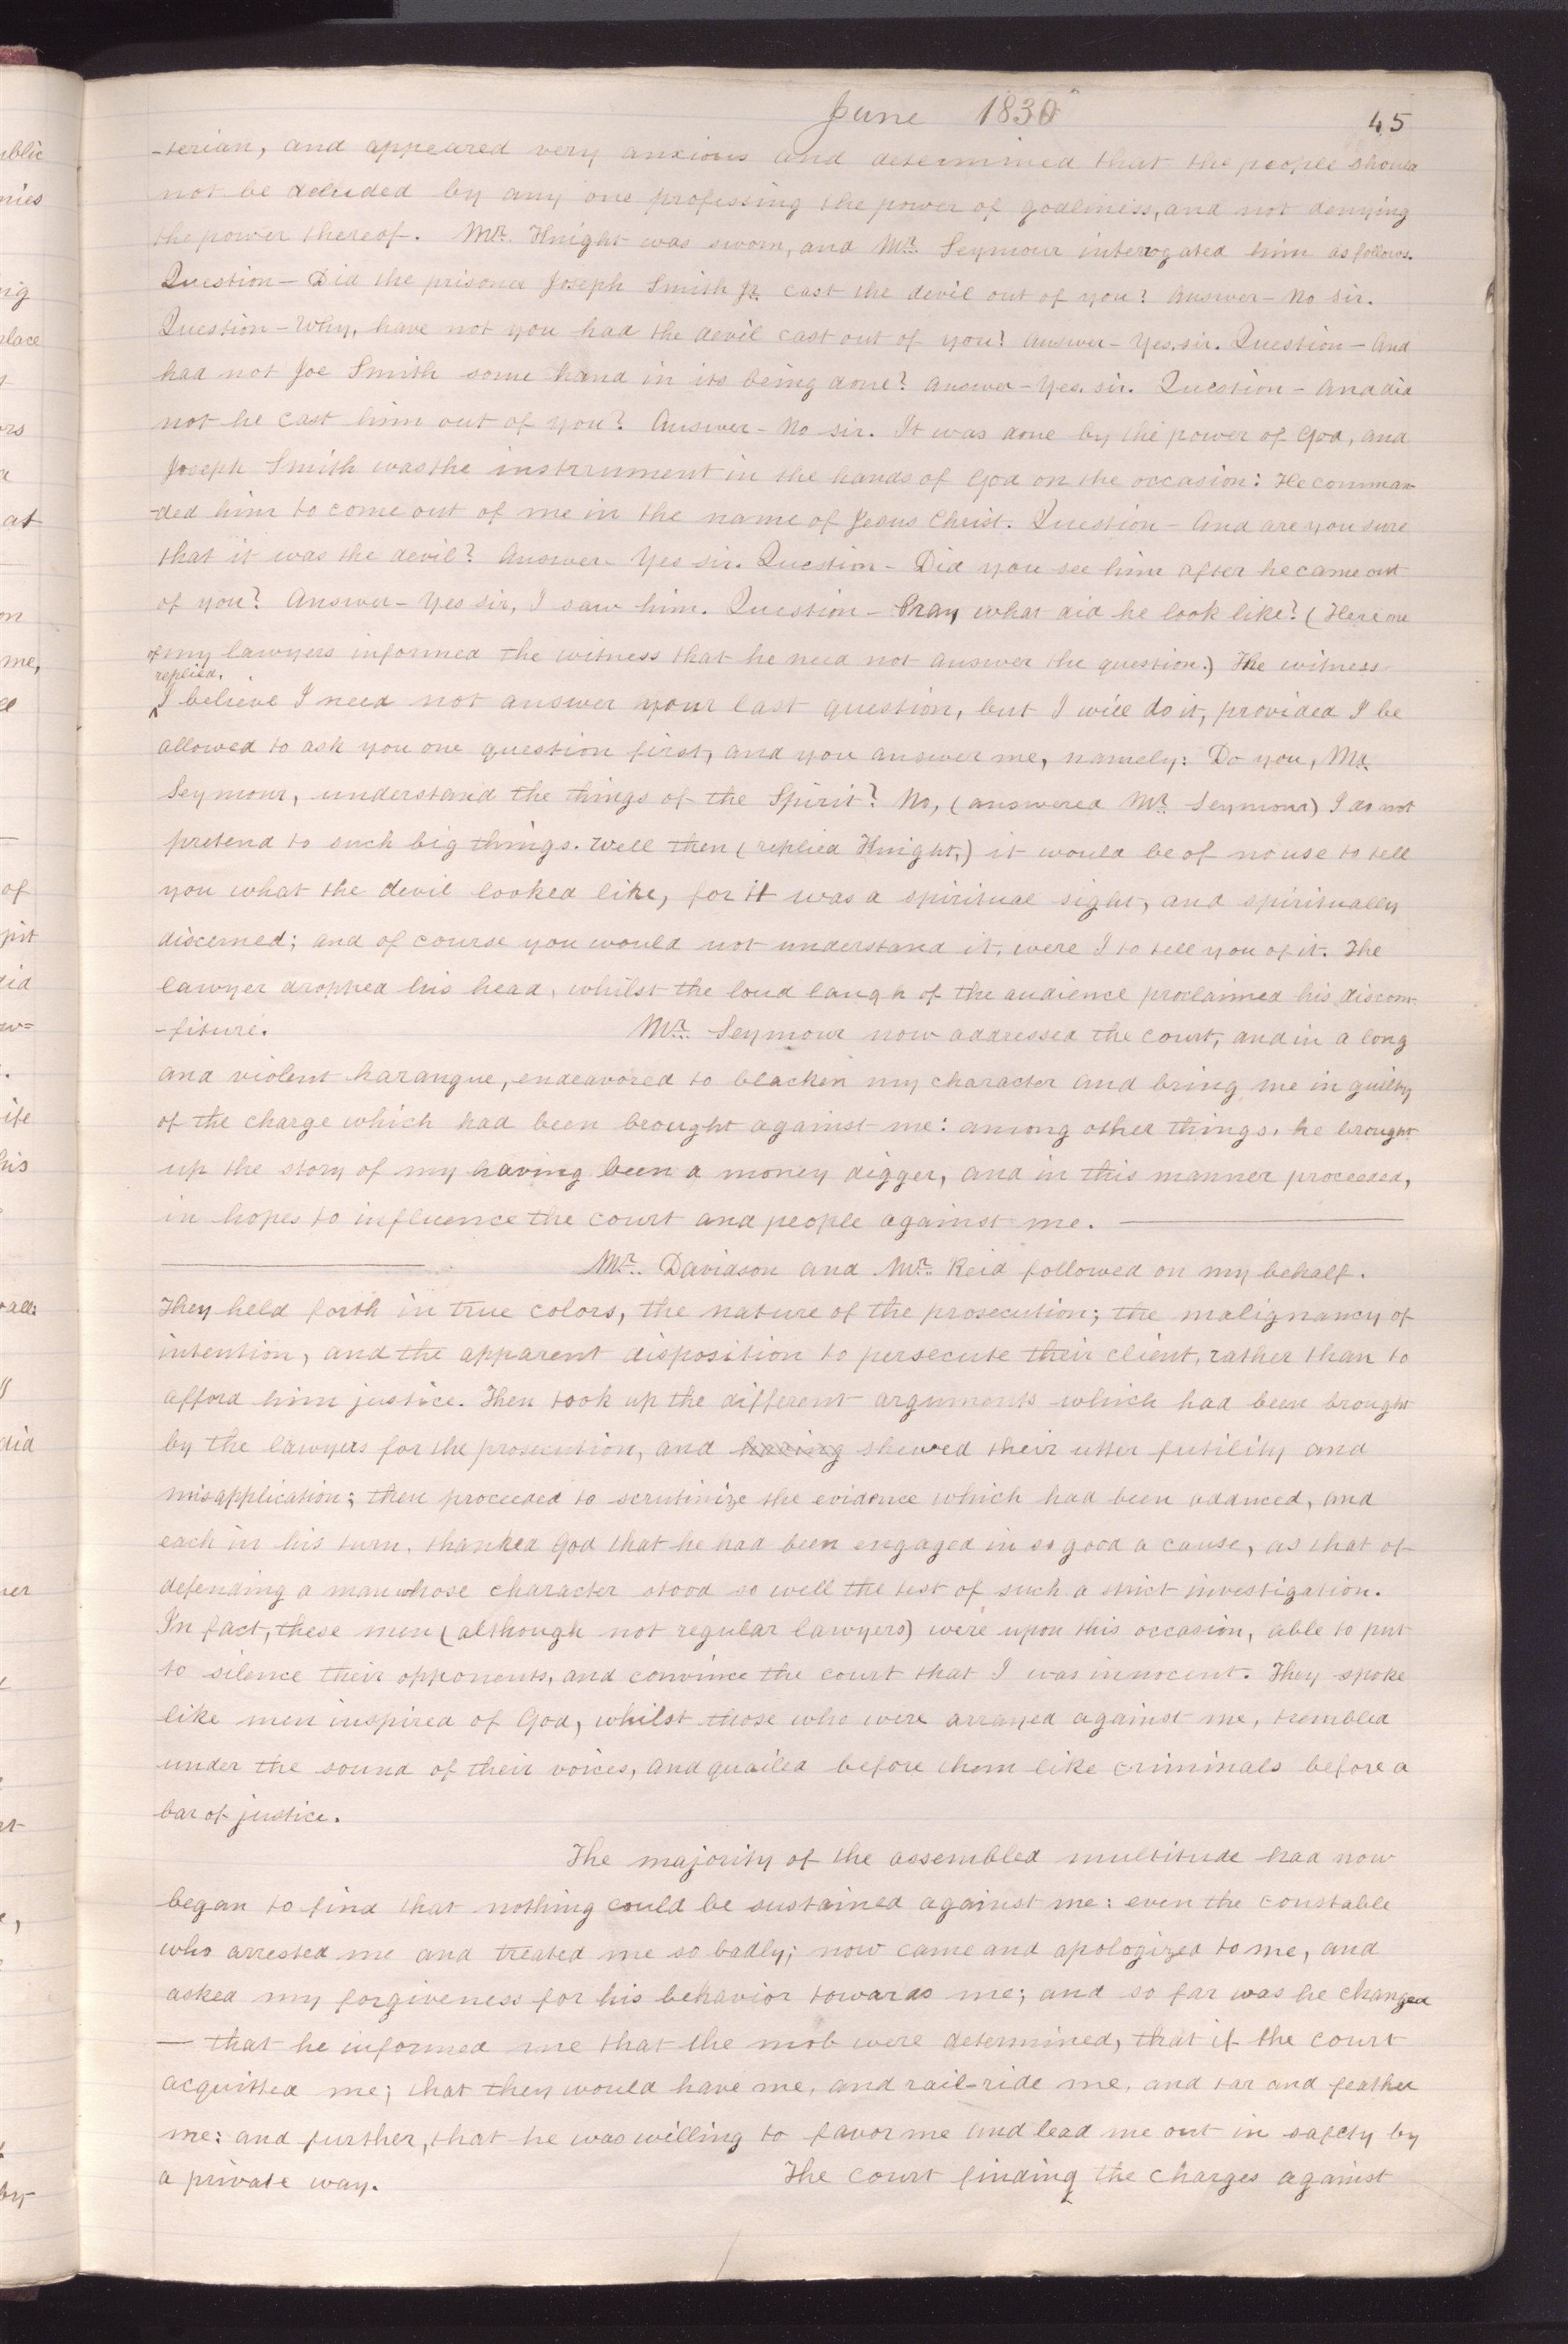 June 1830
45
-terian, and appeared very anxious and determined that the people should
not be deluded by any one professing the power of godliness, and not denying
the power thereof. Mr. Knight was sworn, and Mr. Seymour interrogated him as follows.
Question – Did the prisoner Joseph Smith Jr. cast the devil out of you? Answer – No sir.
Question – Why, have not you had the devil cast out of you? Answer – Yes. sir. Question – And
had not Joe Smith some hand in its being done? Answer – Yes. sir. Question – And did
not he cast him out of you? Answer – No sir. It was done by the power of God, and
Joseph Smith was the instrument in the hands of God on the occasion: He comman-
-ded him to come out of me in the name of Jesus Christ. Question – And are you sure
that it was the devil? Answer – Yes sir. Question – Did you see him after he came out
of you? Answer – Yes sir, I saw him. Question – Pray, what did he look like? (Here one
of my lawyers informed the witness that he need not answer the question.) The witness
replied,
I believe I need not answer your last question, but I will do it, provided I be
allowed to ask you one question first, and you answer me, namely: Do you, Mr.
Seymour, understand the things of the Spirit? No, (answered Mr. Seymour) I do not
pretend to such big things. Well then (replied Knight,) it would be of no use to tell
you what the devil looked like, for it was a spiritual sight, and spiritually
discerned; and of course you would not understand it, were I to tell you of it. The
lawyer dropped his head, whilst the loud laugh of the audience proclaimed his discom-
-fiture. Mr. Seymour now addressed the court, and in a long
and violent harangue, endeavored to blacken my character and bring me in guilty
of the charge which had been brought against me: among other things, he brought
up the story of my having been a money digger, and in this manner proceeded,
in hopes to influence the court and people against me. ———
——— Mr. Davidson and Mr. Reid followed on my behalf.
They held forth in true colors, the nature of the prosecution; the malignancy of
intention, and the apparent disposition to persecute their client, rather than to
afford him justice. Then took up the different arguments which had been brought
by the lawyers for the prosecution, and having shewed their utter futility and
misapplication; then proceeded to scrutinize the evidence which had been adduced, and
each in his turn, thanked God that he had been engaged in so good a cause, as that of
defending a man whose character stood so well the test of such a strict investigation.
In fact, these men (although not regular lawyers) were upon this occasion, able to put
to silence their opponents, and convince the court that I was innocent. They spoke
like men inspired of God, whilst those who were arrayed against me, trembled
under the sound of their voices, and quailed before them like criminals before a
bar of justice.
The majority of the assembled multitude had now
began to find that nothing could be sustained against me: even the constable
who arrested me and treated me so badly; now came and apologized to me, and
asked my forgiveness for his behavior towards me; and so far was he changed
— that he informed me that the mob were determined, that if the court
acquitted me; that they would have me, and rail-ride me, and tar and feather
me: and further, that he was willing to favor me and lead me out in safety by
a private way. The court finding the charges against